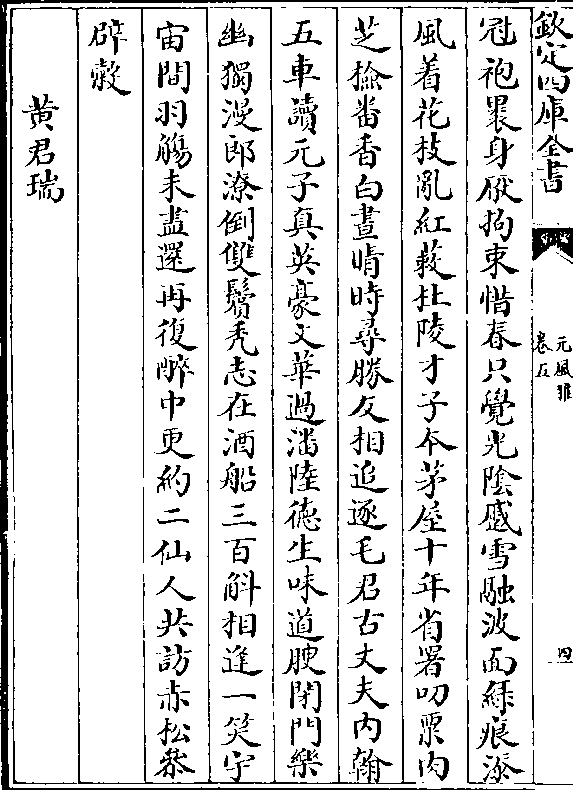 欽定四庫全書
元風雅
卷五
四
冠袍累身厭拘束惜春只覺光陰蹙雪融波面綠痕添
風着花枝亂紅蔌杜陵才子本茅屋十年省署叨粟肉
芝檢番香白晝情時尋勝友相追逐毛君古丈夫內翰
五車讀元子真英豪文華過潘陸德生味道腴閉門樂
幽獨漫郎潦倒雙鬢禿志在酒船三百斛相逢一笑宇
宙間羽觴未盡還再復醉中更約二仙人共訪赤松參
辟糓
黃君瑞